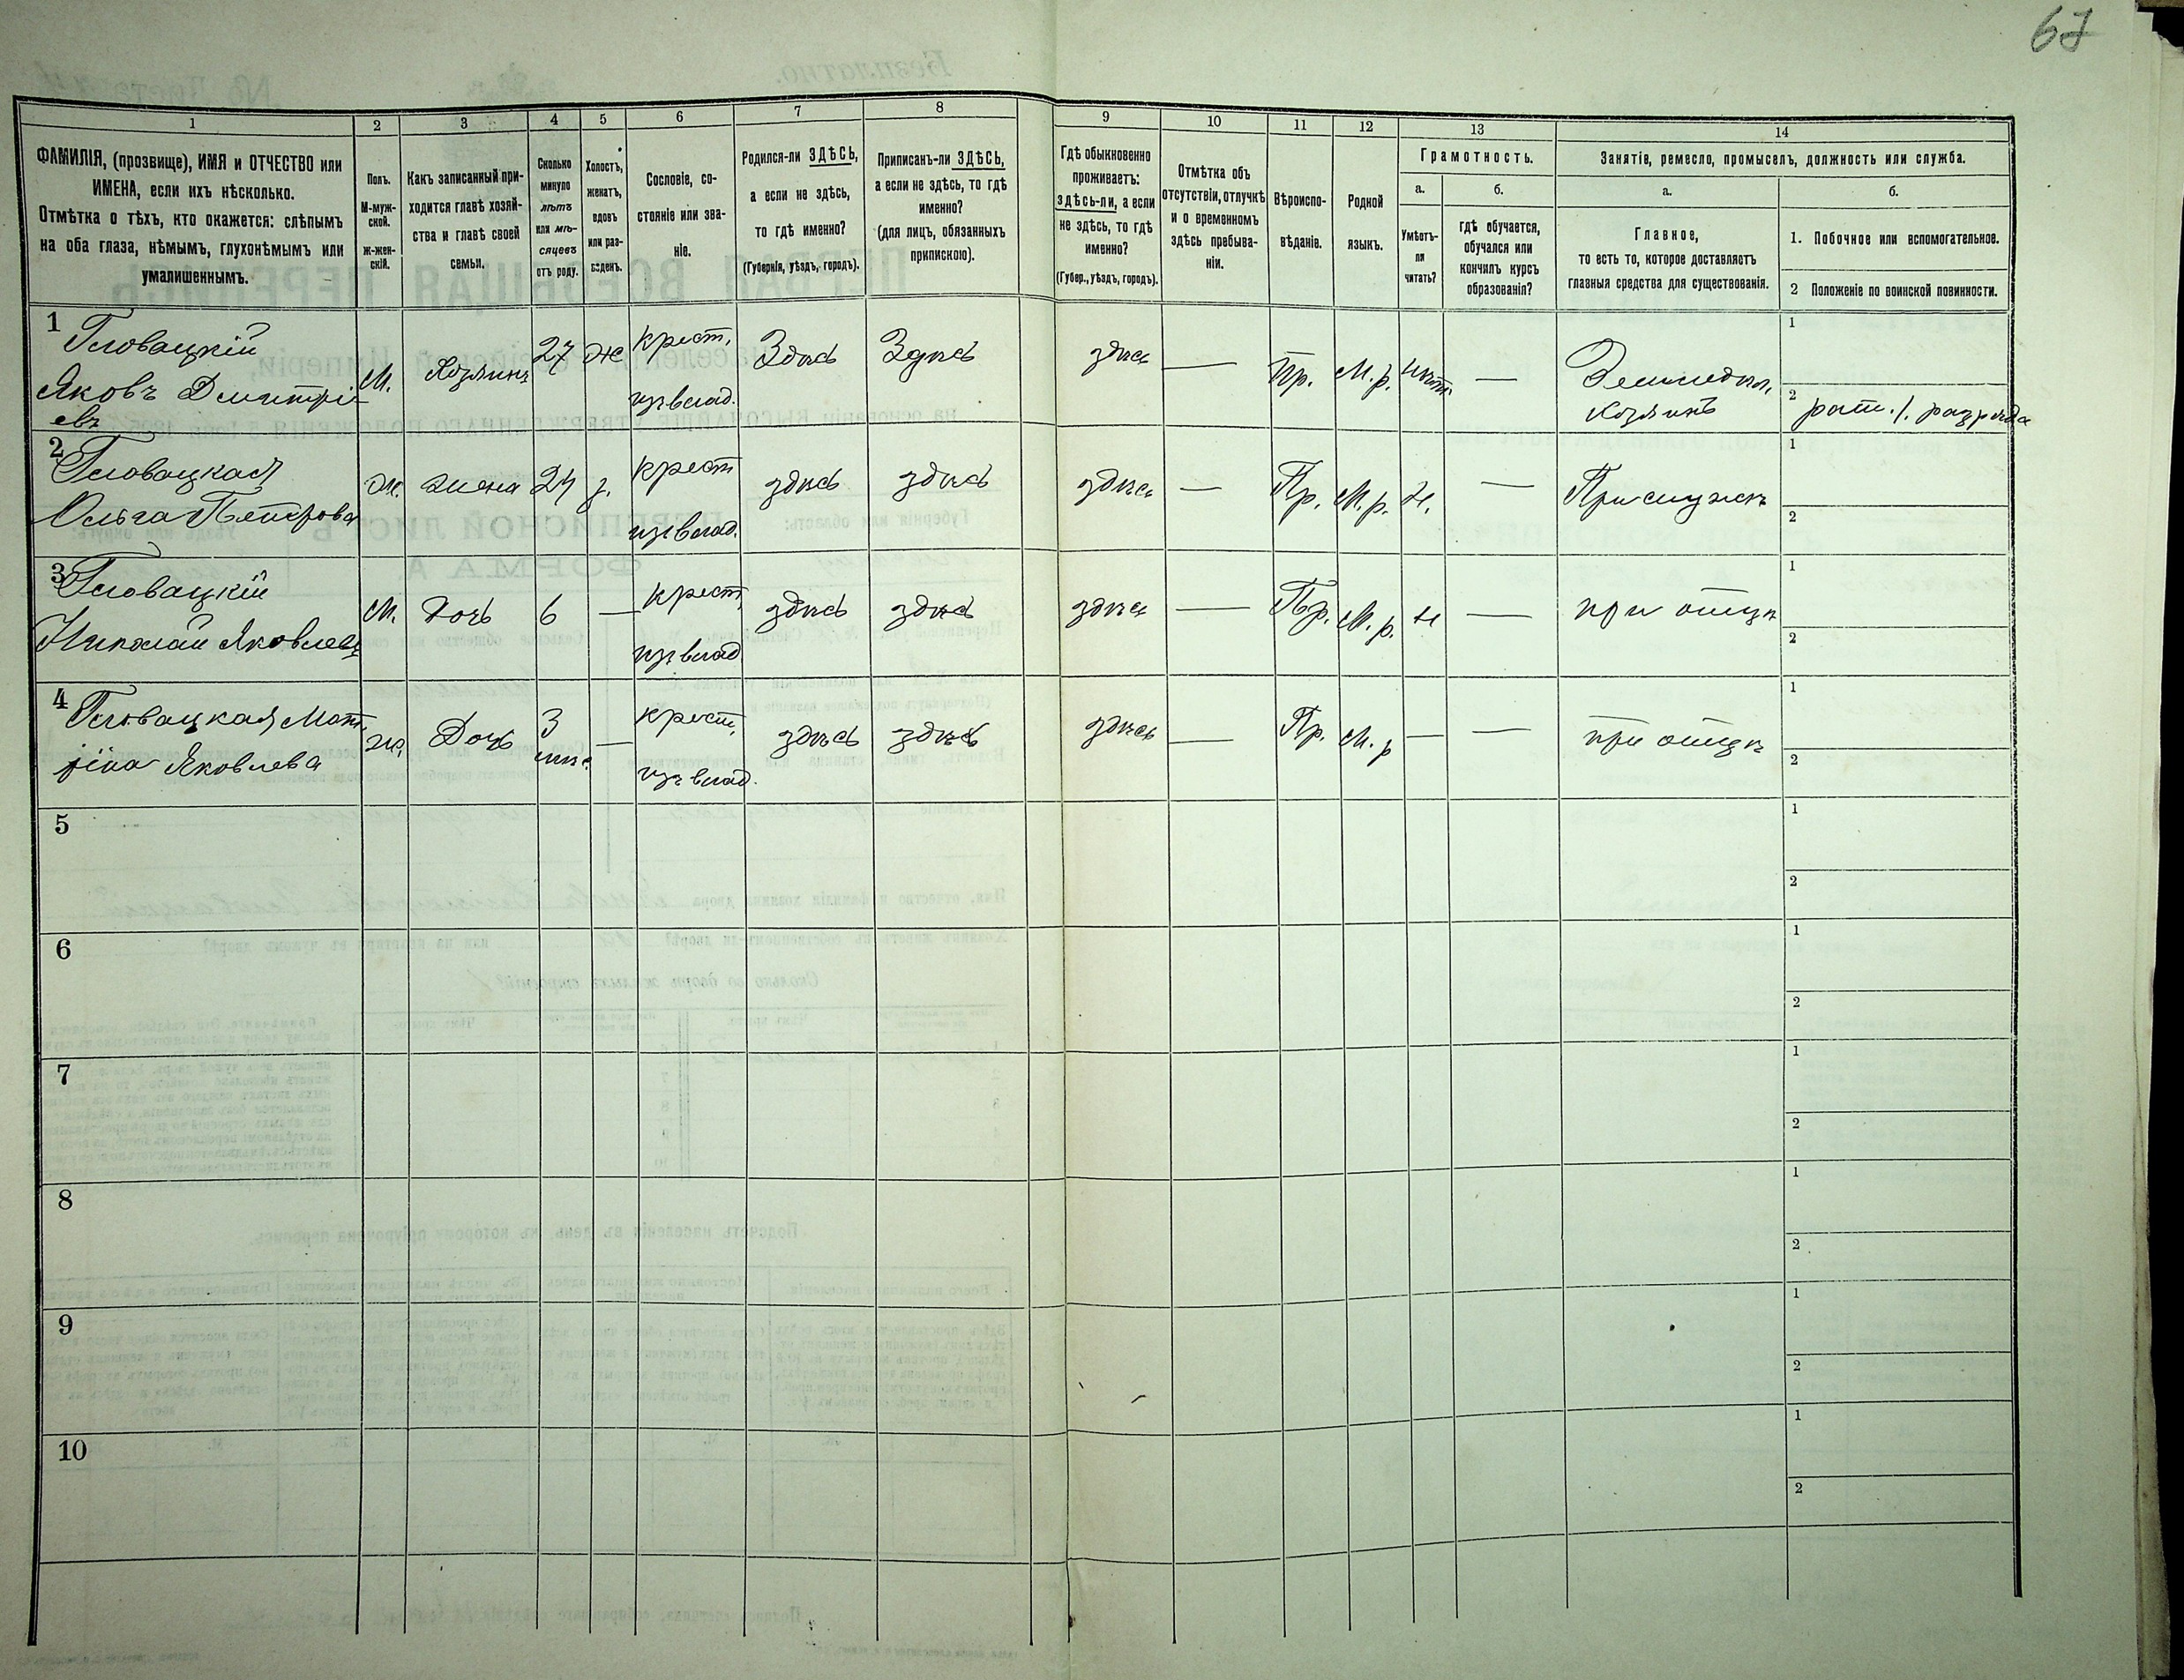 67
1 2 3 4 5 6 7 8 9 10 11 12 13 14
ФАМИЛІЯ, (прозвище), ИМЯ и ОТЧЕСТВО или
ИМЕНА, если ихъ нѣсколько.
Отмѣтка о тѣхъ, кто окажется: слѣпымъ
на оба глаза, нѣмымъ, глухонѣмымъ или
умалишеннымъ.
Полъ.
М-муж-
ской.
ж-жен-
скій.
Какъ записанный при-
ходится главѣ хозяй-
ства и главѣ своей
семьи.
Сколько
минуло
лѣтъ
или мѣ-
сяцевъ
отъ роду.
Холостъ,
женатъ,
вдовъ
или раз-
веденъ.
Сословіе, со-
стояніе или зва-
ніе.
Родился-ли ЗДѢСЬ,
а если не здѣсь,
то гдѣ именно?
(Губернія, уѣздъ, городъ).
Приписанъ-ли ЗДѢСЬ,
а если не здѣсь, то гдѣ
именно?
(для лицъ, обязанныхъ
припискою).
Гдѣ обыкновенно
проживаетъ:
здѣсь-ли, а если
не здѣсь, то гдѣ
именно?
(Губер., уѣздъ, городъ).
Отмѣтка объ
отсутствіи, отлучкѣ
и о временномъ
здѣсь пребыва-
ніи.
Вѣроиспо-
вѣданіе.
Родной
языкъ.
Грамотность.
а.
Умѣетъ-
ли
читать?
б.
гдѣ обучается,
обучался или
кончилъ курсъ
образованія?
Занятіе, ремесло, промыселъ, должность или служба.
а.
Главное,
то есть то, которое доставляетъ
главныя средства для существованія.
б.
1. Побочное или вспомогательное.
2 Положеніе по воинской повинности.
1 Гловацкій
Яковъ Дмитрі-
евъ
М.
Хозяинъ
27
ж
крест,
изъ влад.
Здѣсь
Здѣсь
здѣсь
—
Пр.
М.р.
нѣтъ
—
Земледѣл,
хозяинъ
1
2 рат. 1. разряда
2 Гловацкая
Ольга Пятрова
ж.
жена
24
з.
крест
изъ влад.
здѣсь
здѣсь
здѣсь
—
Пр.
М.р.
Н.
—
При мужѣ
1
2
3 Гловацкій
Николай Яковлевъ
М.
Дочь
6
—
крест,
изъ влад
здѣсь
здѣсь
здѣсь
—
Пр.
М.р.
Н
—
при отцѣ
1
2
4 Гловацкая Мат
ріна Яковлева
ж.
Дочь
3
мѣс.
—
крест,
изъ влад.
здѣсь
здѣсь
здѣсь
—
Пр.
М.р
—
—
при отцѣ
1
2
5
1
2
6
1
2
7
1
2
8
1
2
9
1
2
10
1
2